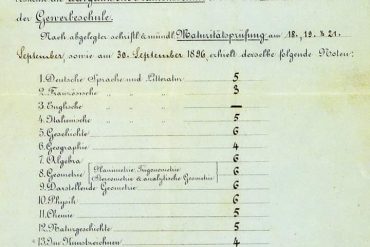 der Gewerbeschule.
Nach abgelegter schriftl. & mündl. Maturitätsprüfung am 18., 19. & 21.
September, sowie am 30. September 1896, erhielt derselbe folgende Noten:
1. Deutsche Sprache und Litteratur 5
2. Französische " " " 3
3. Englische " " " —
4. Italienische " " " 5
5. Geschichte 6
6. Geographie 4
7. Algebra 6
8. Geometrie [Planimetrie, Trigonometrie Stereometrie & analytische Geometrie] 6
9. Darstellende Geometrie 6
10. Physik 6
11. Chemie 5
12. Naturgeschichte 5
* 13. Im Kunstzeichnen 4